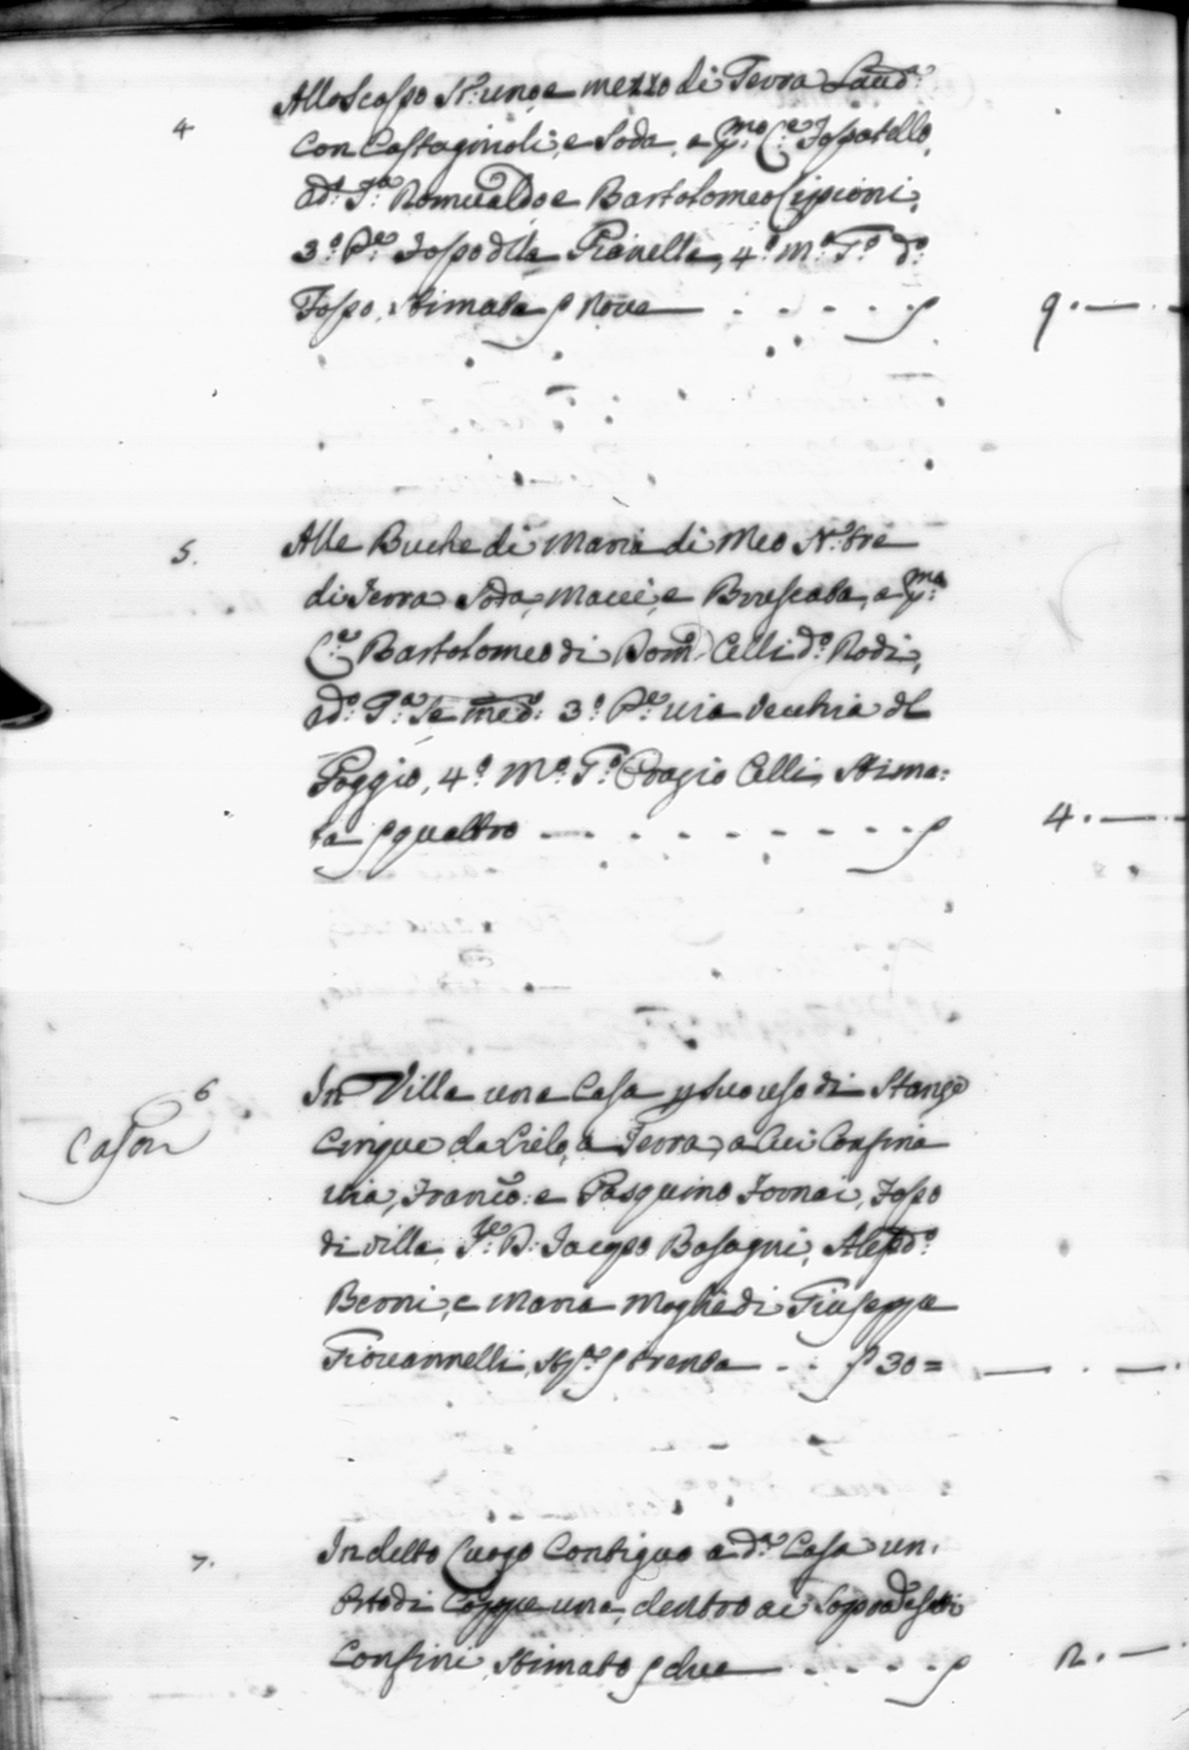 4
Allo Scopo St: uno, e mezzo di Terra Laud:
con Castagnioli, e Soda, a p.mo C.e Fossatello,
ad: T.a Romualdo e Bartolomeo Cipioni,
3.o P.e Fosso d'lla Pianella, 4.o M.o T.o d.o
Fosso, stimata s nove — . - . - . s 9. — .
5.
Alle Buche di Maria di Meo St: tre
di Terra Soda, Macci, e Bruscata, a p.mo
C.e Bartolomeo di Dom: Celli d.o Rodi,
ad.o T.a Se med.o 3.o P.e via Vecchia dl
Poggio, 4.o M.o T.o Biagio Celli, stima:
ta s quattro — . - . - . - . s 4. — .
6
Cason
In Villa una Casa p suo uso di Stanze
Cinque da Cielo, a Terra, a Cui Confina
via, Franc.o e Pasquino Fornai, Fosso
di villa, D: Iacopo Basagni, Aless.o
Berni, e Maria Moglie di Giuseppe
Giovannelli, s trenta - . . s 30 = — . —
7.
In detto Luogo Contiguo a d.a Casa un'
Orto di Coppe una, dentro ai Sopradescritti
Confini, stimato s due — . . - . s 2. —